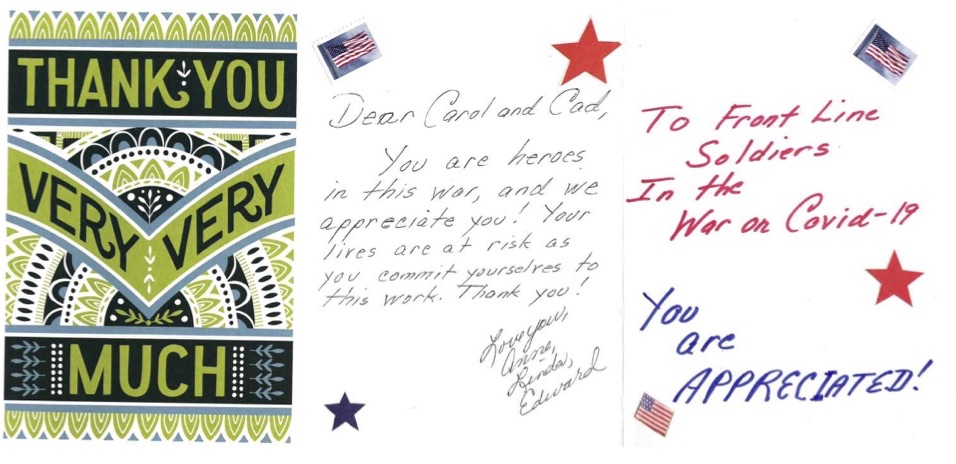 THANK YOU
VERY VERY
MUCH
Dear Carol and Cad,
You are heroes
in this war, and we
appreciate you! Your
lives are at risk as
you commit yourselves to
this work. Thank you!
Love you,
Anne,
Linda,
Edward
To Front Line
Soldiers
In the
War on Covid-19
You
are
APPRECIATED!